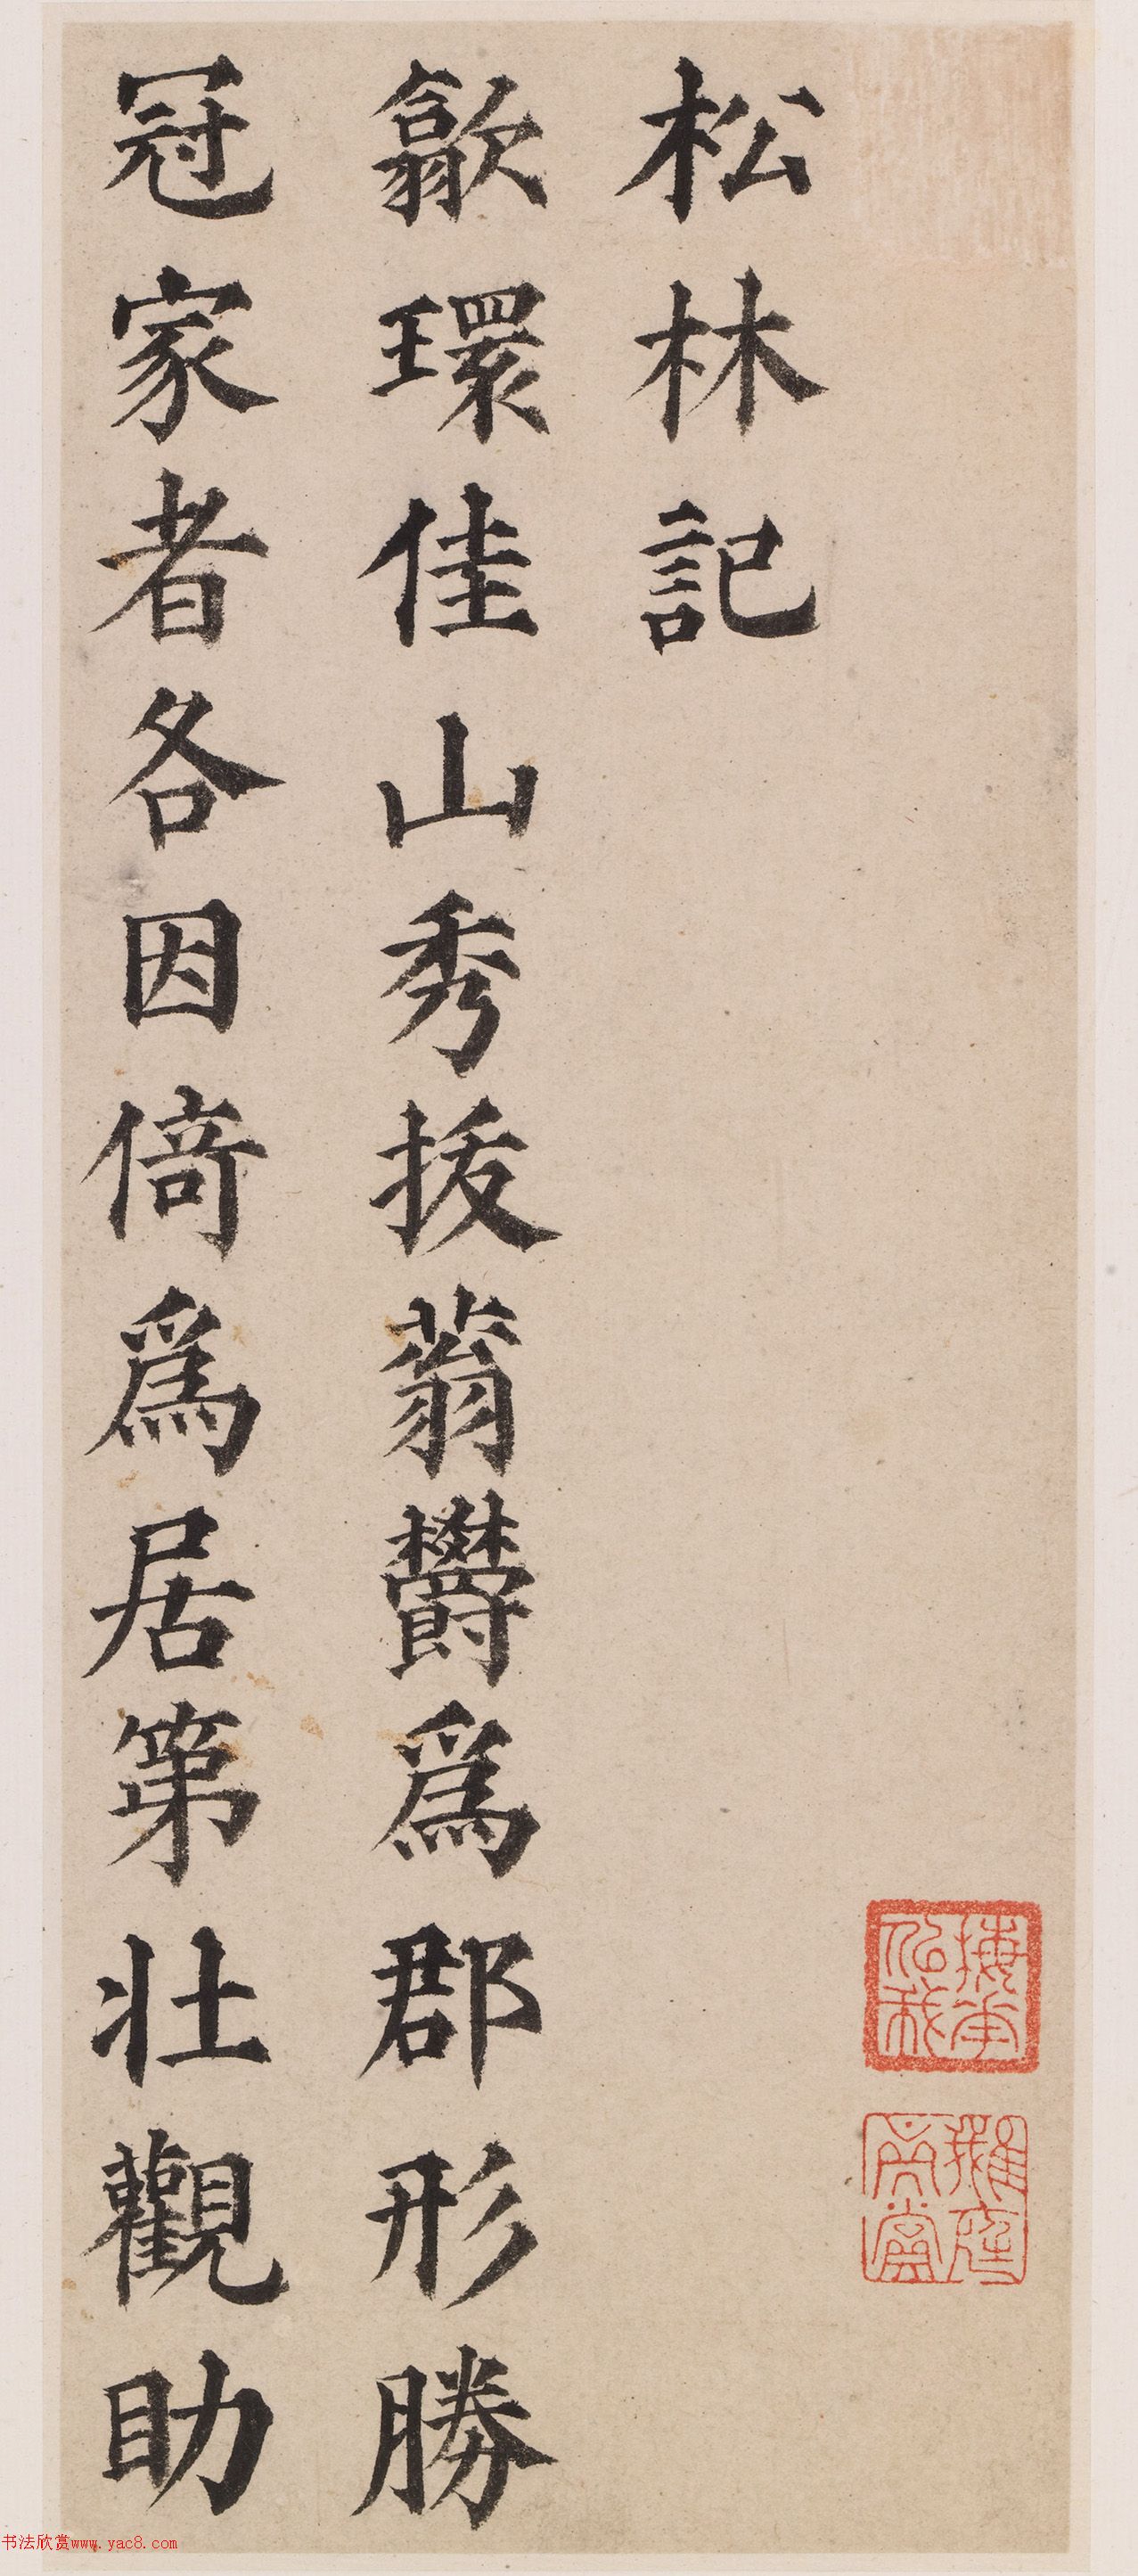 松林記
歙環佳山秀拔蓊鬱為郡形勝
冠家者各因倚為居第壯觀助
書法欣賞www.yac8.com